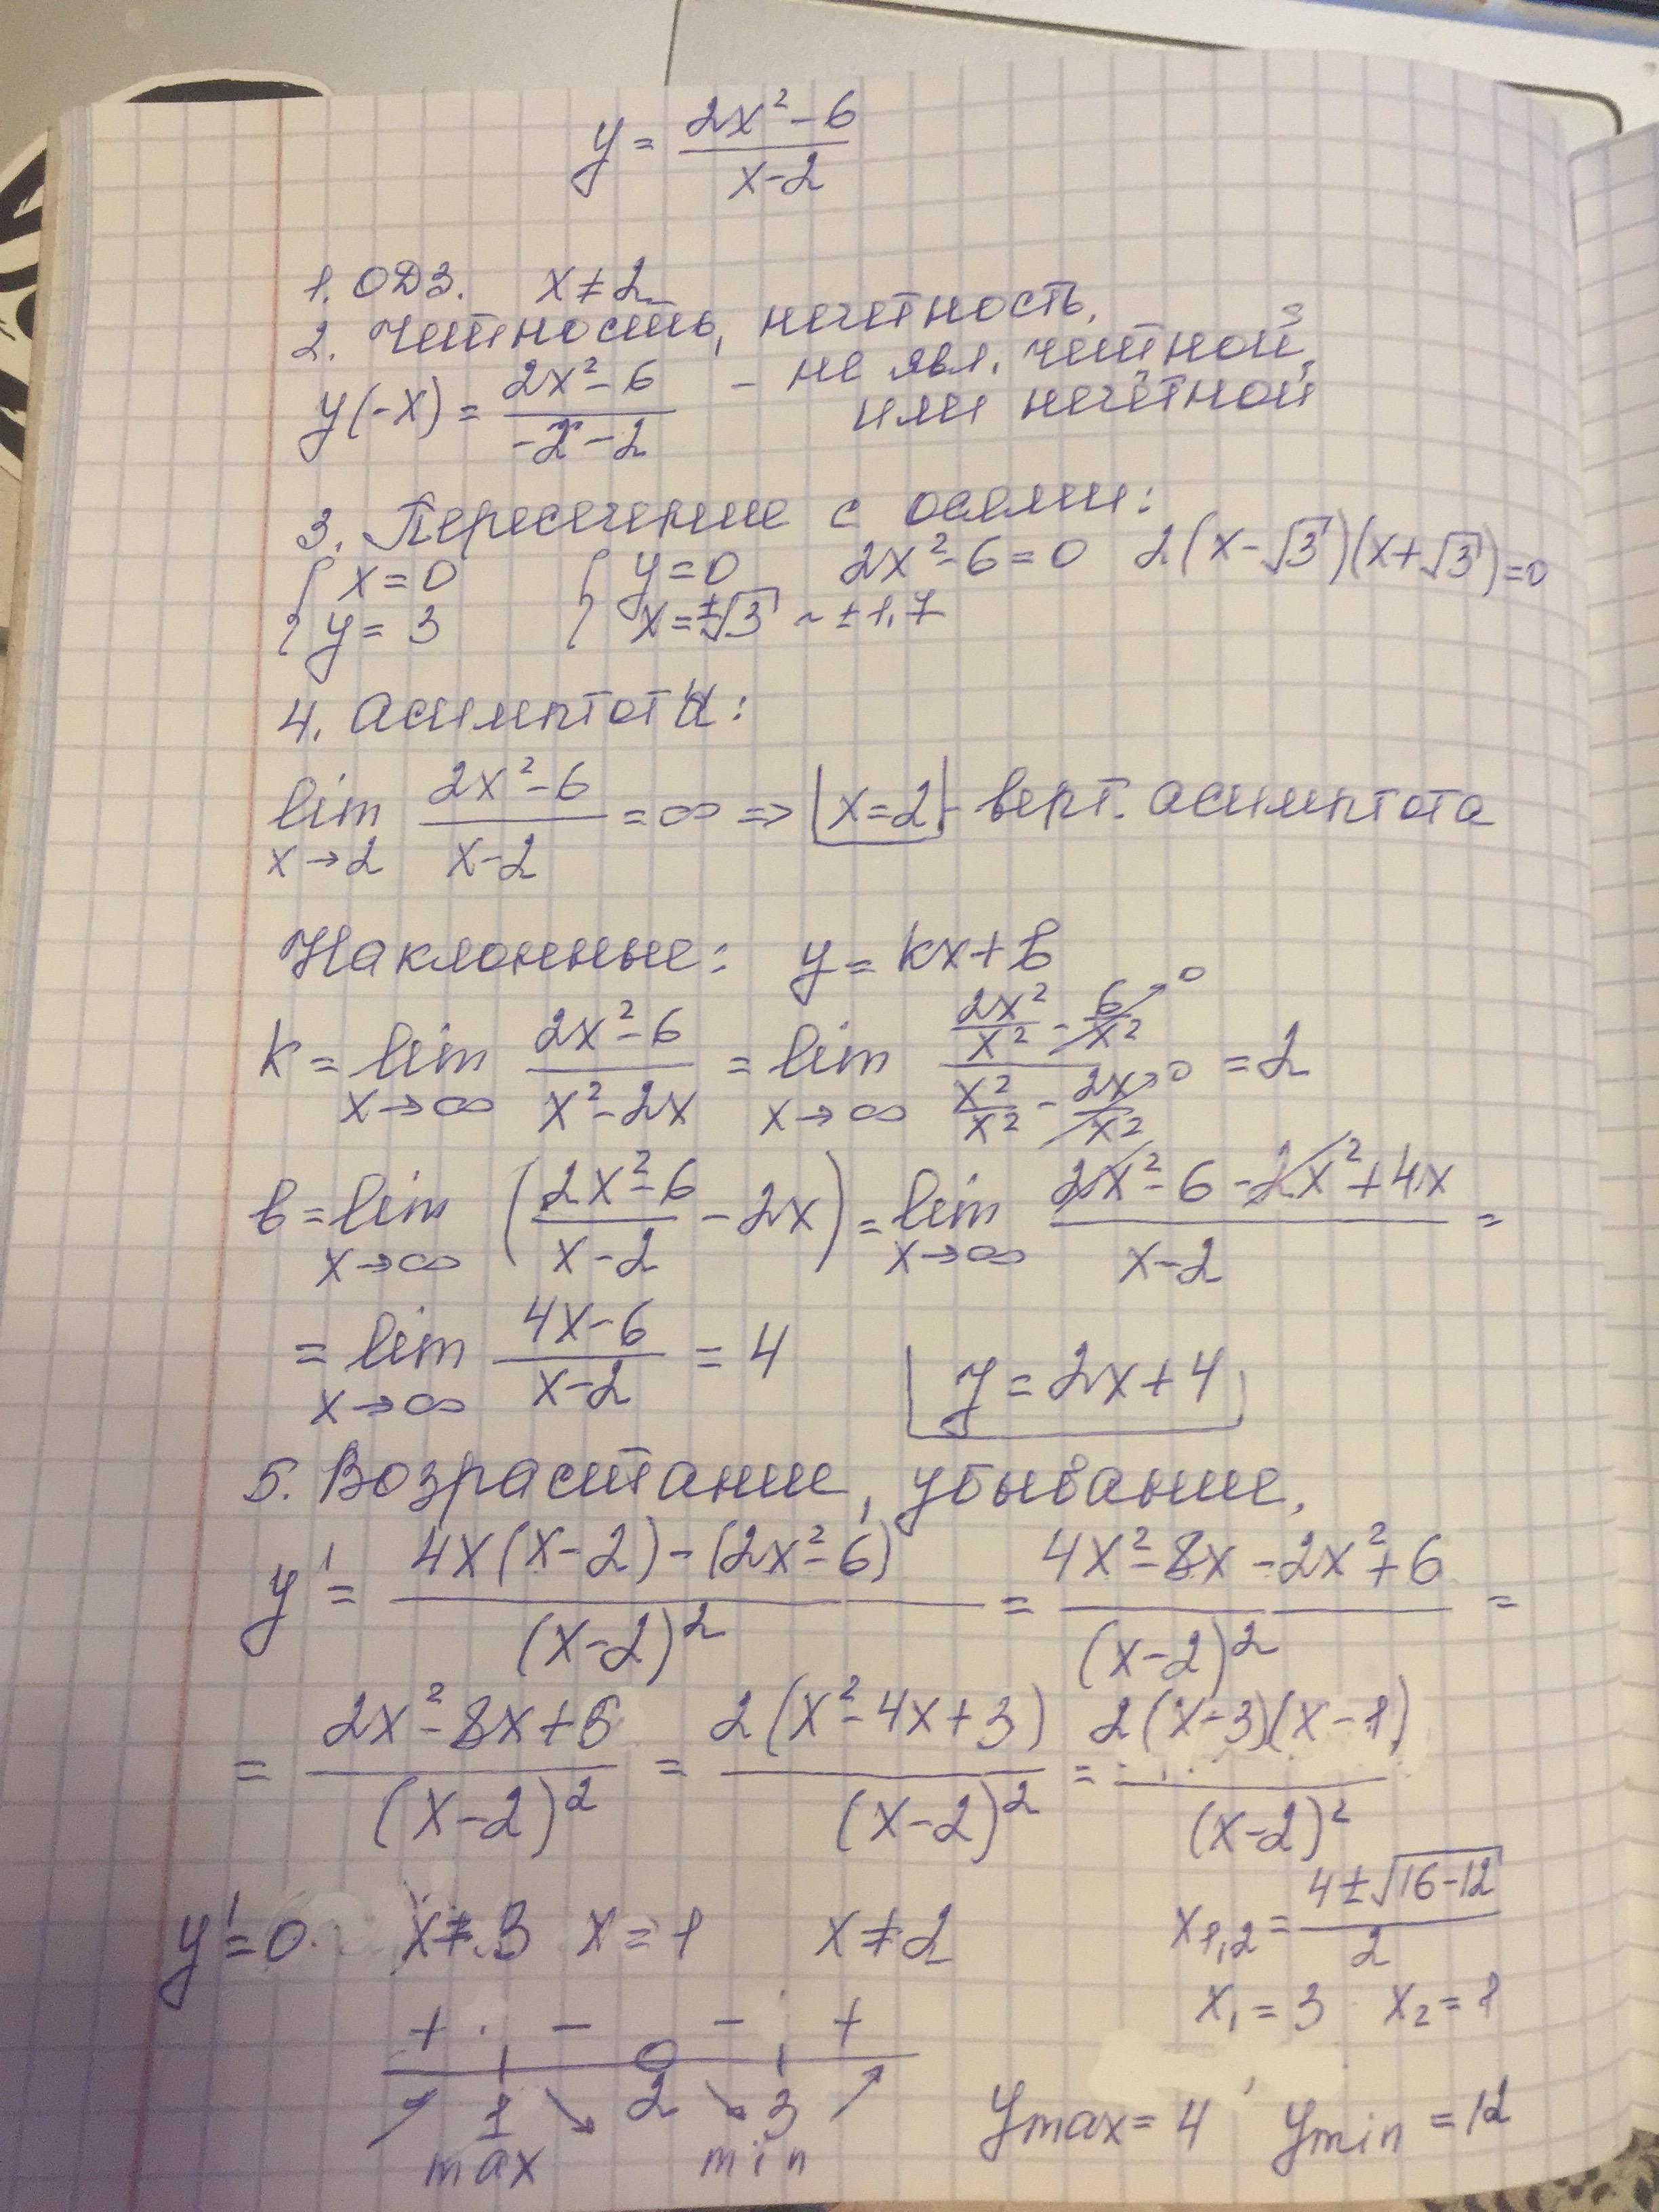 y = (2x² - 6)/(x - 2)
1. ОДЗ. x ≠ 2
2. Четность, нечетность.
y(-x) = (2x² - 6)/(-2 - 2) - не явл. четной, или нечётной
3. Пересечение с осями:
{ x = 0 { y = 0 2x² - 6 = 0 2(x - √3)(x + √3) = 0
{ y = 3 { x = ±√3 ~ ±1,7
4. Асимптоты:
lim x→2 (2x² - 6)/(x - 2) = ∞ => x = 2 - верт. асимптота
Наклонные: y = kx + b
k = lim x→∞ (2x² - 6)/(x² - 2x) = lim x→∞ (2x²/x² - 6/x² →0)/(x²/x² - 2x/x² →0) = 2
b = lim x→∞ ((2x² - 6)/(x - 2) - 2x) = lim x→∞ (2x² - 6 - 2x² + 4x)/(x - 2) =
= lim x→∞ (4x - 6)/(x - 2) = 4 y = 2x + 4
5. Возрастание, убывание.
y' = (4x(x - 2) - (2x² - 6))/(x - 2)² = (4x² - 8x - 2x² + 6)/(x - 2)² =
= (2x² - 8x + 6)/(x - 2)² = 2(x² - 4x + 3)/(x - 2)² = 2(x - 3)(x - 1)/(x - 2)²
y' = 0 x = 3 x = 1 x ≠ 2 x1,2 = (4 ± √(16 - 12))/2
x1 = 3 x2 = 1
+ - - +
1 2 3
max min
ymax = 4 ymin = 12